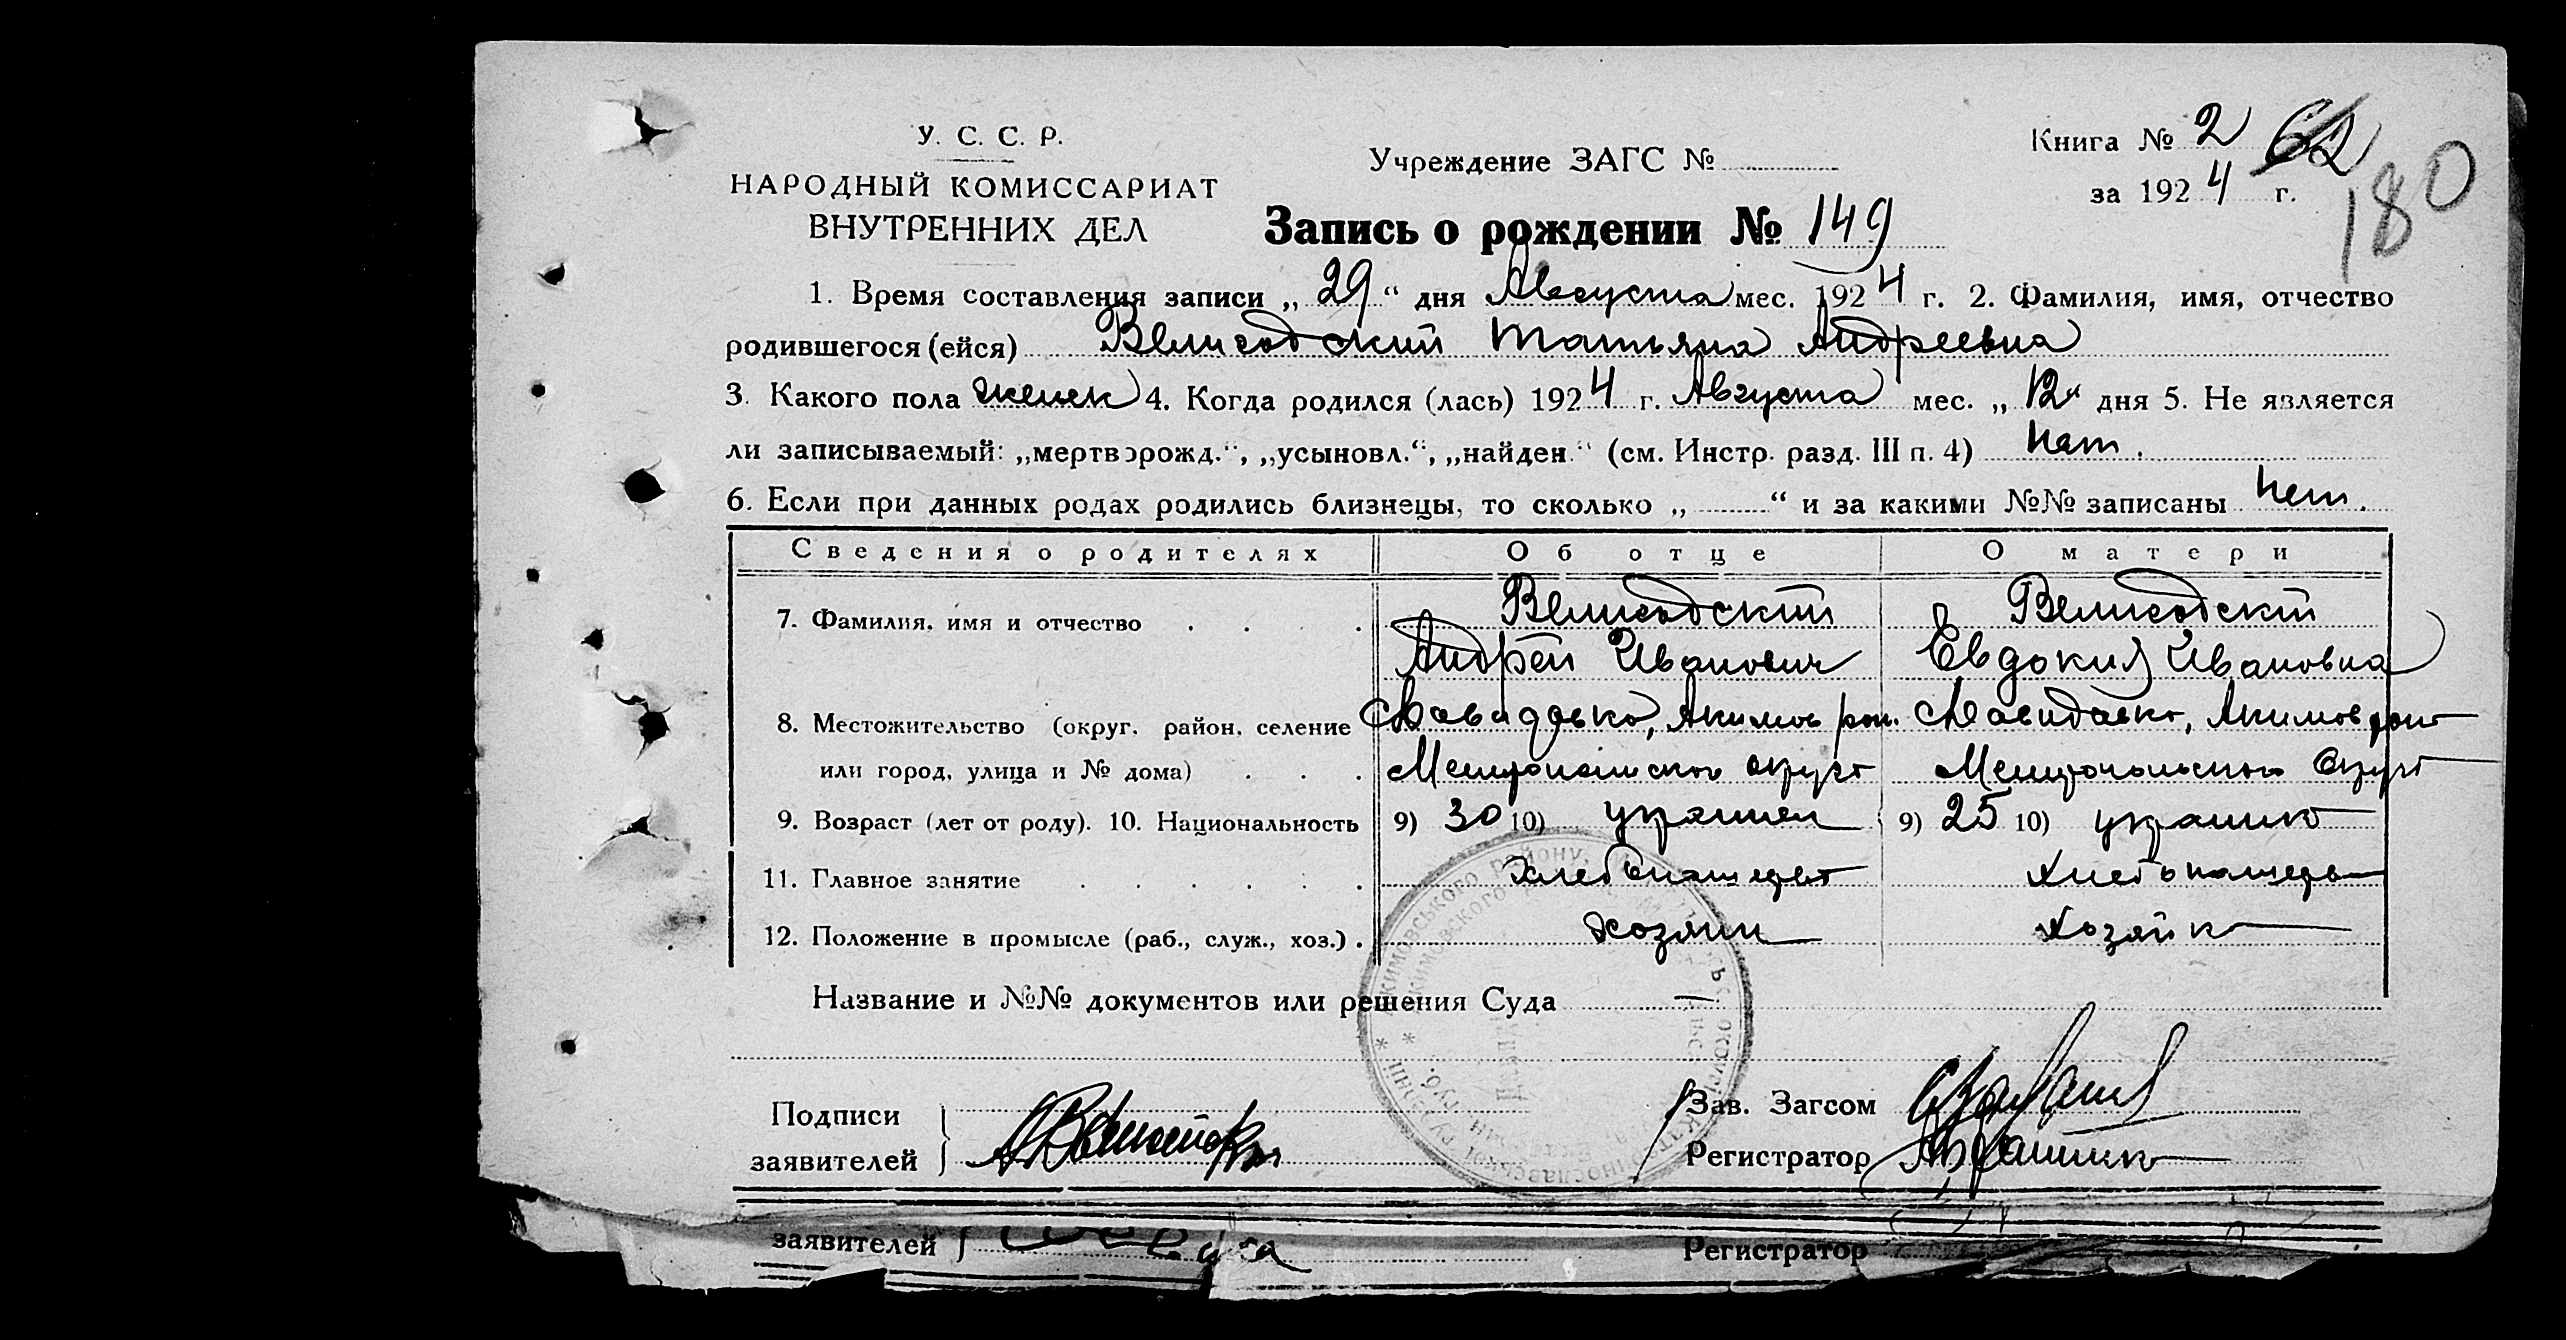 У. С. С. Р.
НАРОДНЫЙ КОМИССАРИАТ
ВНУТРЕННИХ ДЕЛ
Учреждение ЗАГС №
Книга № 2 62
за 1924 г.
180
Запись о рождении № 149
1. Время составления записи „29“ дня Августа мес. 1924 г. 2. Фамилия, имя, отчество
родившегося (ейся) Велигодский Татьяна Андреевна
3. Какого пола женск 4. Когда родился (лась) 1924 г. Августа мес. „12“ дня 5. Не является
ли записываемый: „мертворожд.“, „усыновл.“, „найден.“ (см. Инстр. разд. III п. 4) нет.
6. Если при данных родах родились близнецы, то сколько „ “ и за какими №№ записаны нет.
Сведения о родителях Об отце О матери
7. Фамилия, имя и отчество Велигодский Велигодский
Андрей Иванович Евдокия Ивановна
8. Местожительство (округ, район, селение Давидовка, Акимов рай. Давидовка, Акимов рай
или город, улица и № дома) Мелитопольского округа Мелитопольского округа
9. Возраст (лет от роду). 10. Национальность 9) 30 10) украинец 9) 25 10) украинка
11. Главное занятие Хлебопашество Хлебопашество
12. Положение в промысле (раб., служ., хоз.) Хозяин Хозяйка
Название и №№ документов или решения Суда —
Подписи
заявителей
Зав. Загсом
Регистратор
заявителей
Регистратор